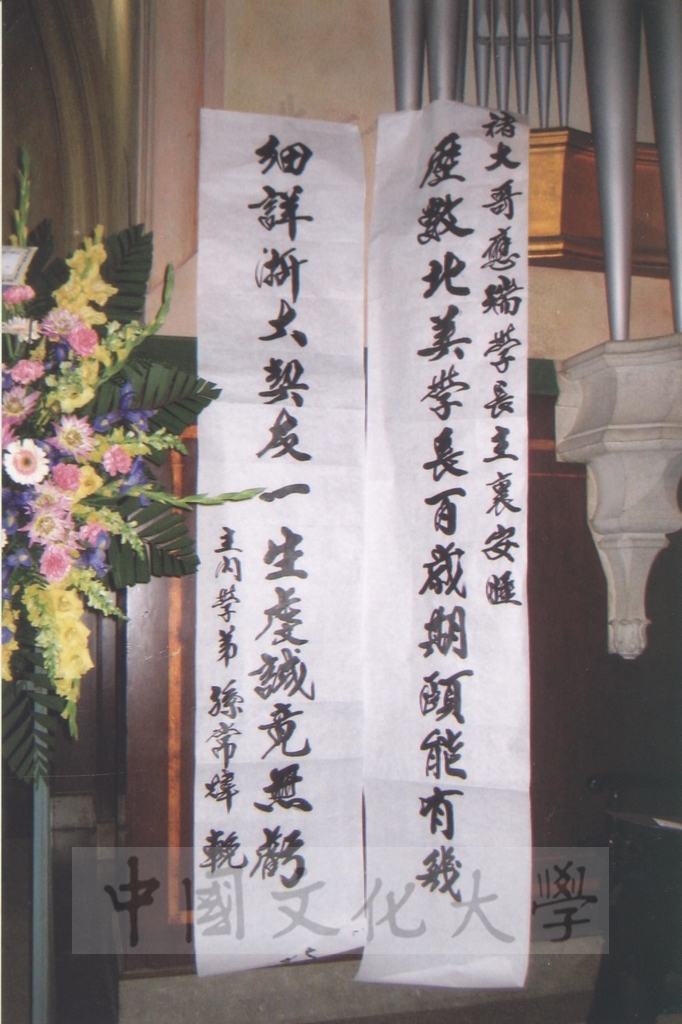 褚大哥應瑞學長主裏安睡
歷數北美學長百歲期頤能有幾
細詳浙大契友一生虔誠竟無虧
主內學弟 孫常煒 輓
中國文化大學